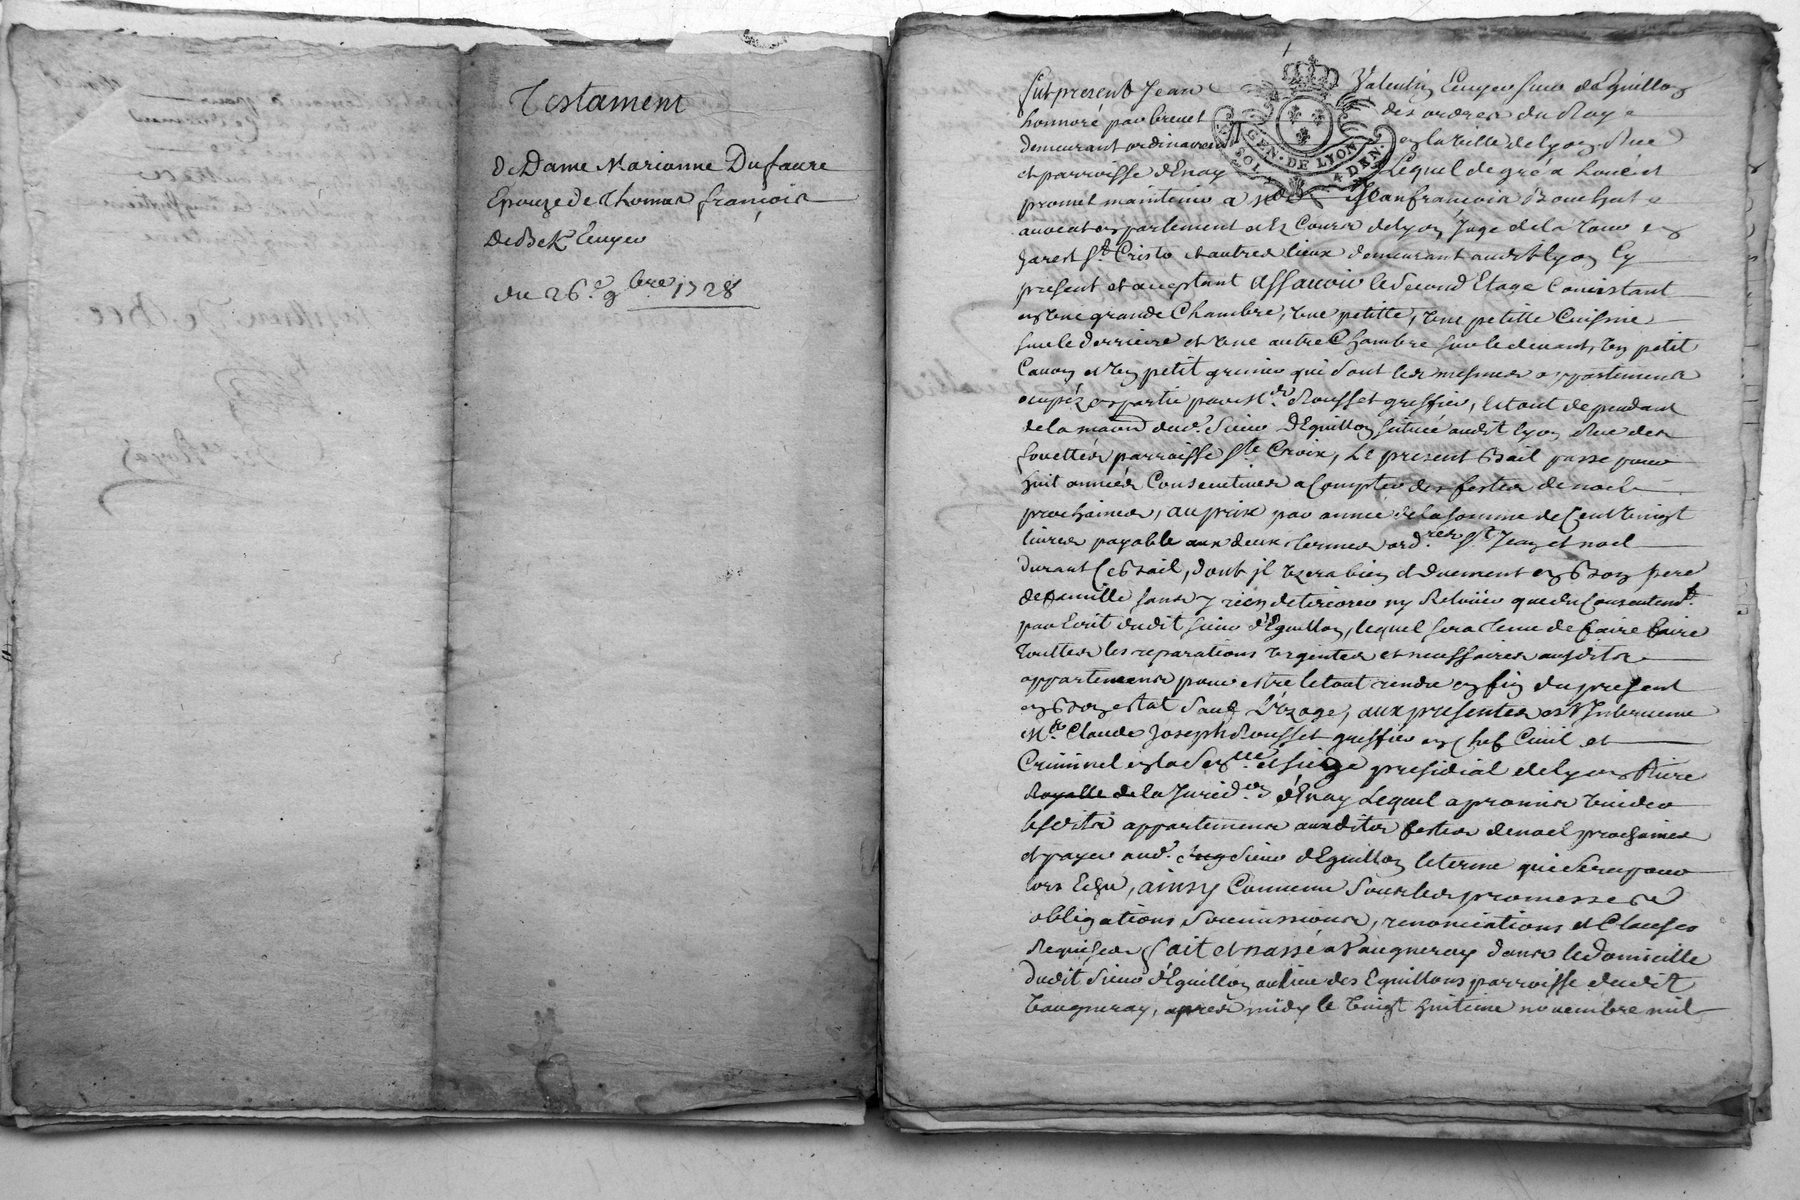 Testament
De Dame Marianne Dufaure
Epouze de Thomas françois
De Bek Ecuyer
du 26.e 9bre 1728
fut present Jean Valentin Ecuyer sieur dEguillon
honnoré par brevet des ordres du Roy
demeurant ordinairemt en la ville de Lyon Rue
et parroisse d'Enay Lequel de gré a Loué et
promet maintenir a Jean françois Bouchat
avocat en parlement et es Cours de Lyon Juge de la Tour en
Jarest St. Cristo et autres lieux demeurant audit Lyon Cy
present et acceptant Assavoir le Second Etage Consistant
en Une grande Chambre, Une petitte, Une petitte Cuisine
sur le derriere et Une autre Chambre sur le devant, Un petit
Cavon et Un petit grenier qui sont les mesmes appartemens
occupéz en partie par Me. Rousset greffier, le tout dependant
de la maison dud. Sieur D'Eguillon scituée audit Lyon Rue des
fouettés parroisse Ste Croix, Le present Bail passé pour
huit années Consecutives a Compter des festes de noel
prochaines, au prix par année de la somme de Cent Vingt
livres payable aux deux termes ordres St. Jean et noel
durant Ce Bail, dont jl Uzera bien et duement en Bon pere
de famille sans y rien deteriorer ny que du Consentemt.
par Ecrit dudit sieur d'Eguillon, lequel sera tenu de faire faire
touttes les reparations Urgentes et necessaires ausdits
appartemens pour estre le tout rendu en fin du present
en Bon estat sauf L'Uzage, aux presentes est Intervenu
Me. Claude Joseph Rousset greffier en Chef Civil et
Criminel en la Senlle. et siege presidial de Lyon
Royalle de la Juridon d'Enay Lequel a promis Vuider
lesdits appartemens auxdites festes de noel prochaines
et payer aud. Sieur d'Eguillon le terme qui sera pour
lors Echu, ainsy Convenu Sous les promesses
obligations Soumissions, renonciations et Clauses
Requises fait et passé a Vaugneray dans le domicille
dudit Sieur d'Eguillon au lieu des Eguillons parroisse dudit
Vaugneray, apres midy le Vingt huitieme novembre mil
GEN. DE LYON